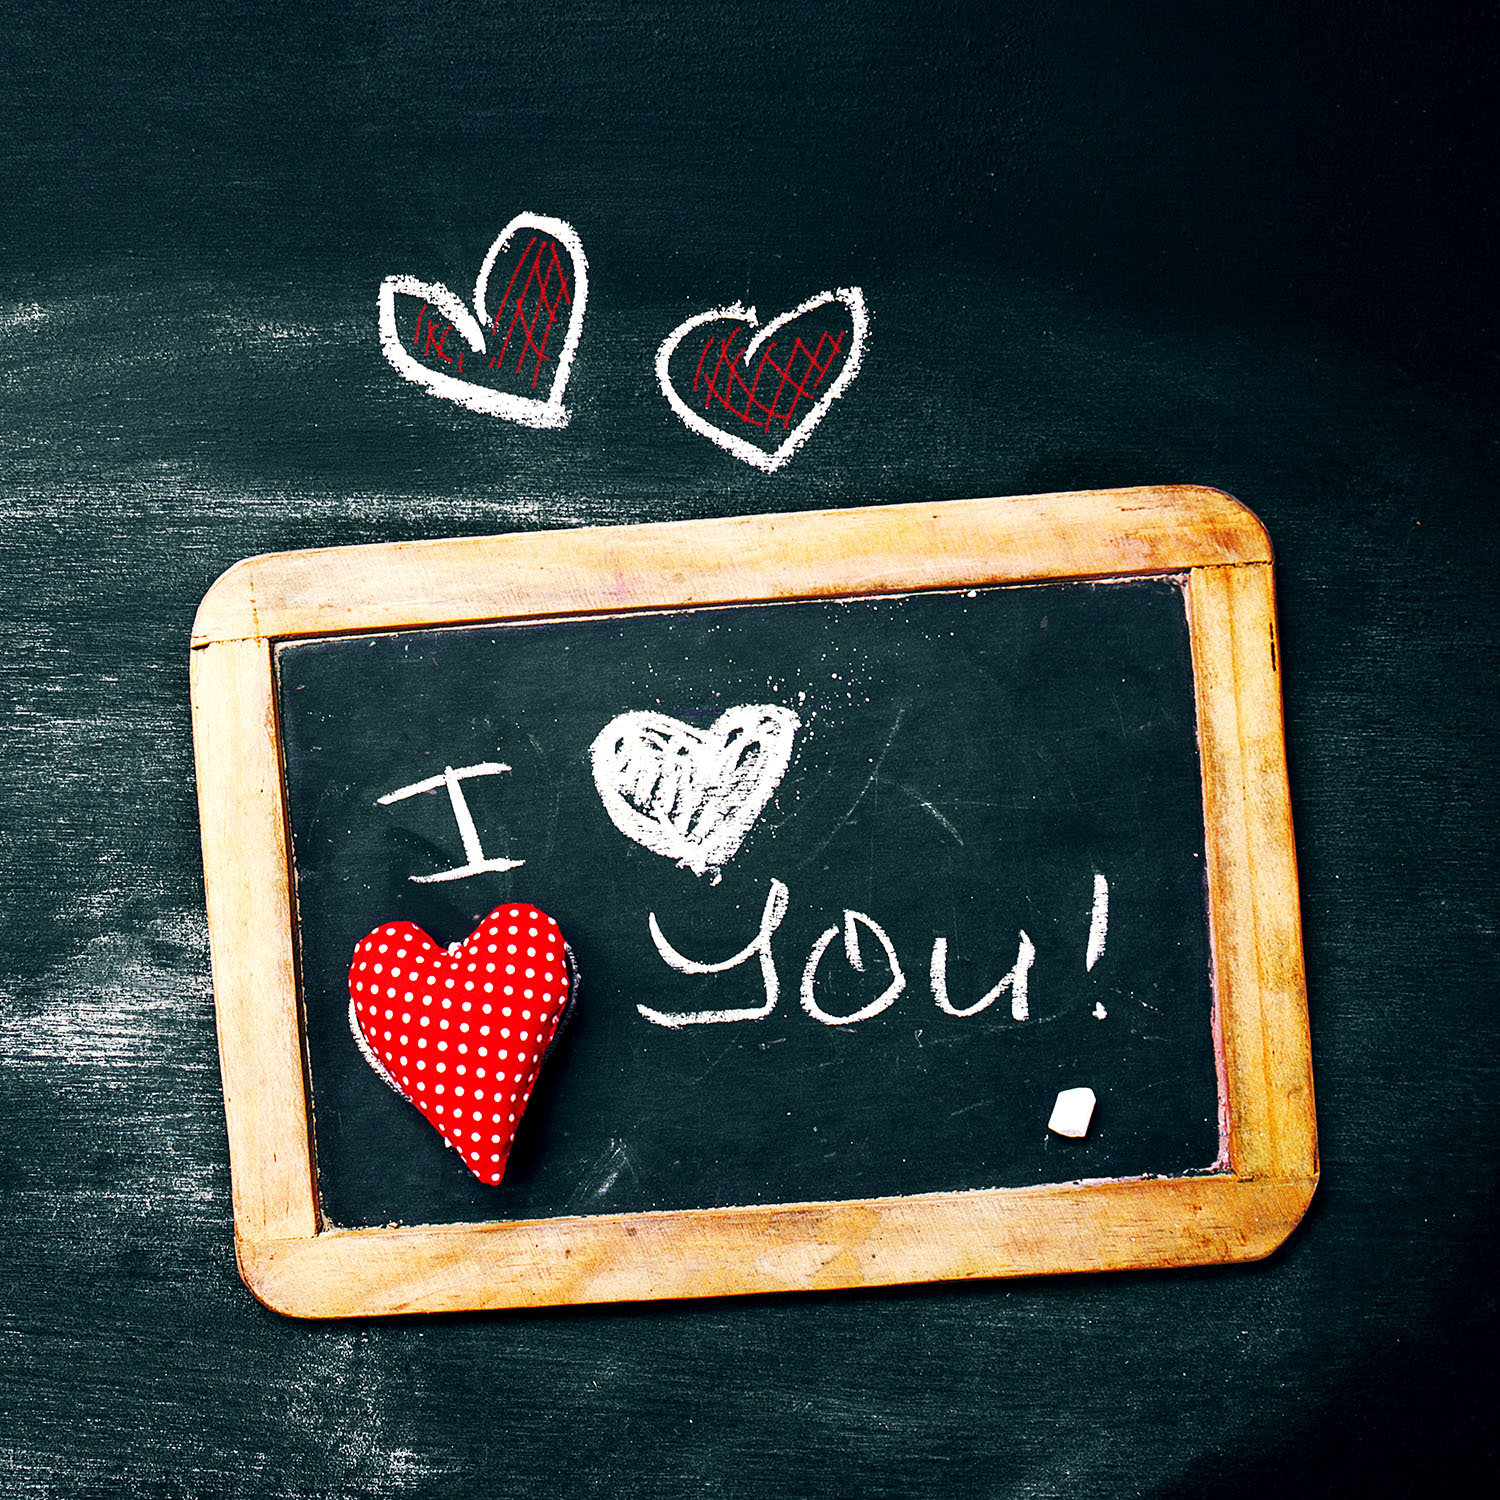 I ♥
You!